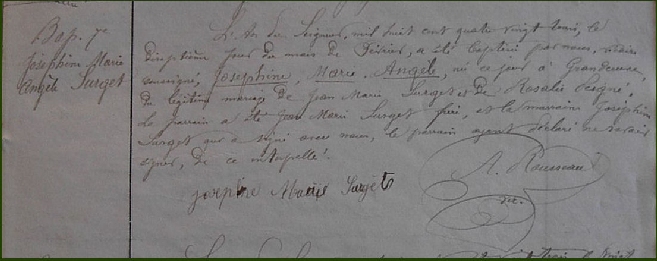 Bap. 7e
Joséphine Marie
Angèle Surget
L'An du Seigneur, mil huit cent quatre vingt trois, le
dixseptième jour du mois de Février, a été baptisé par nous, vicaire
soussigné, Joséphine, Marie, Angèle, né ce jour à
du légitime mariage de Jean Marie Surget et de Rosalie
Le parrain a été Jean Marie Surget, frère, et la marraine Joséphine
Surget qui a signé avec nous, le parrain ayant déclaré ne savoir
signer, de ce interpellé.
A. Rousseau
vic.
josphine Marie Surget